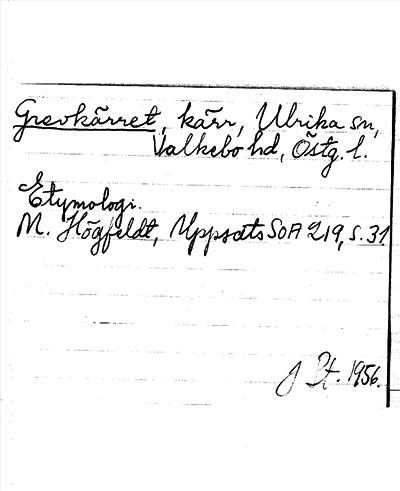 Grevkärret, kärr, Ulrika sn,
Valkebo hd, Östg. l.
Etymologi.
M. Högfeldt, Uppsats SOA 219, s. 31
J St. 1956.